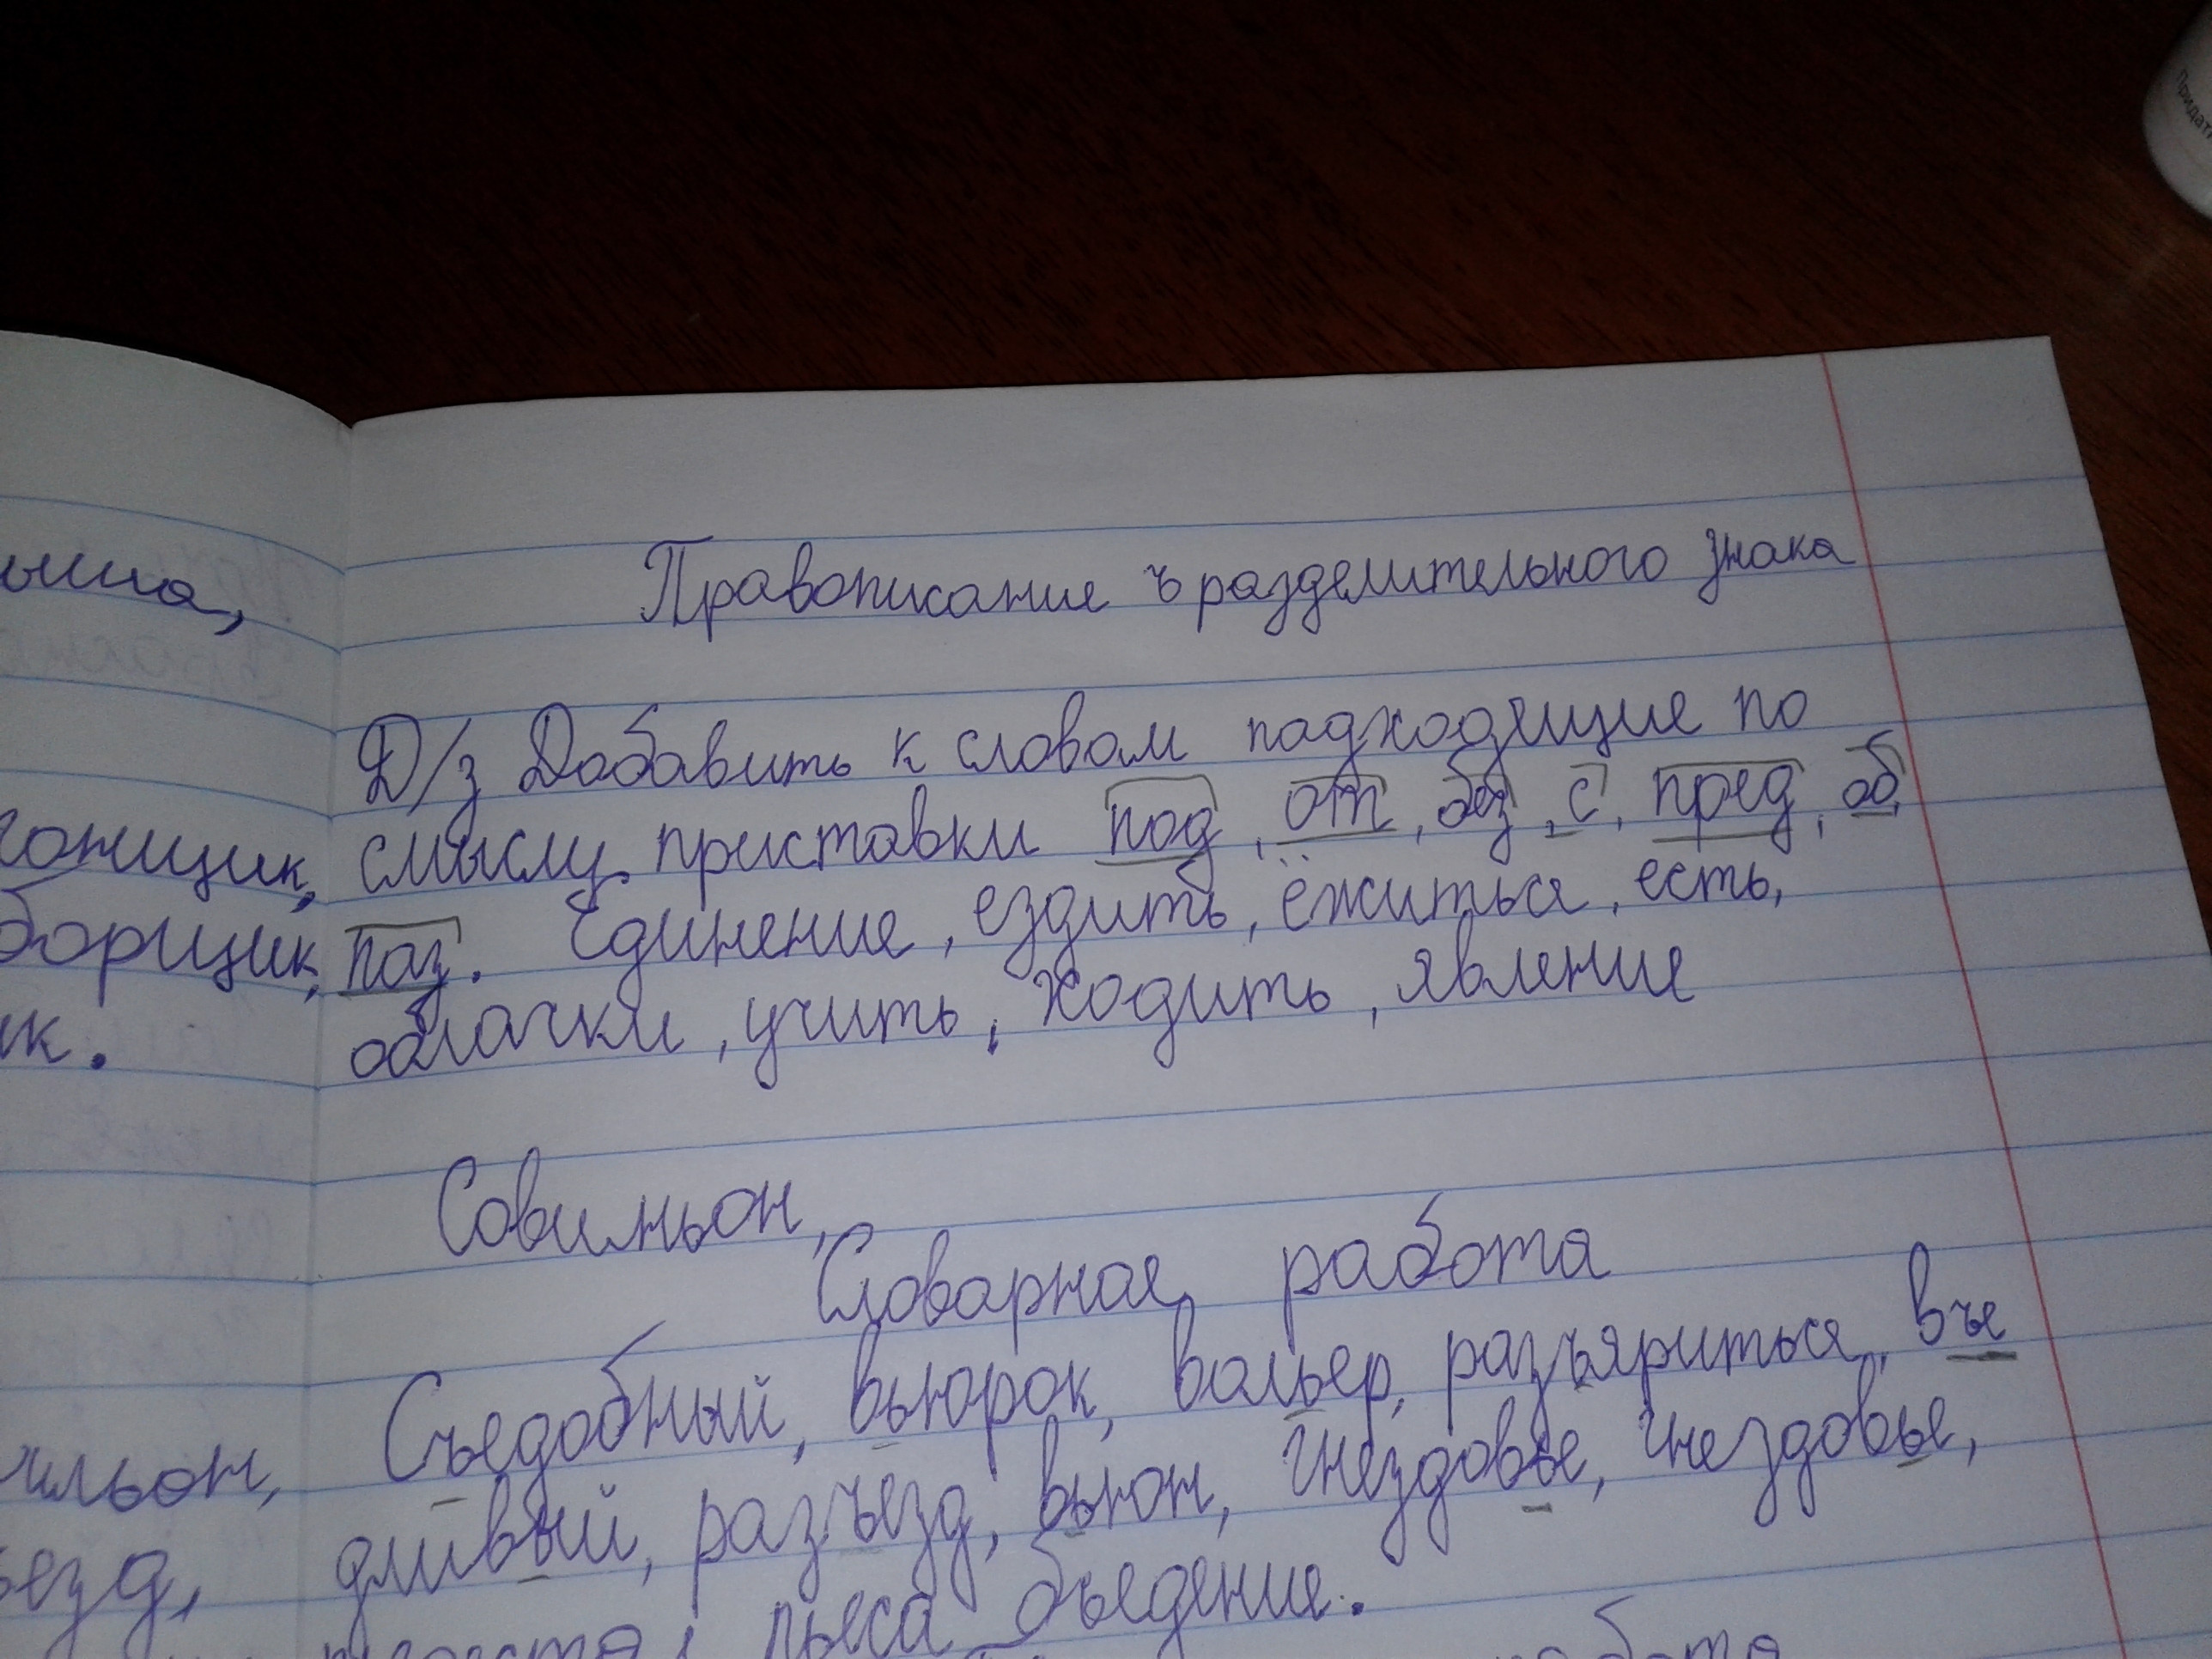 Придати
ыша,
гонщик,
борщик,
ик.
ильон,
ъезд,
Правописание ъ разделительного знака
Д/з Добавить к словам падходящие по
смыслу приставки под, от, без, с, пред, об,
паз. Единение, ездить, ёжиться, есть,
облачки, учить, ходить, явление
Совиньон,
Словарная работа
Съедобный, вьюрок, вольер, разъяриться, въе
дливый, разъезд, вьюн, гнездовье, гнездовье,
пьеса объедение.
работа